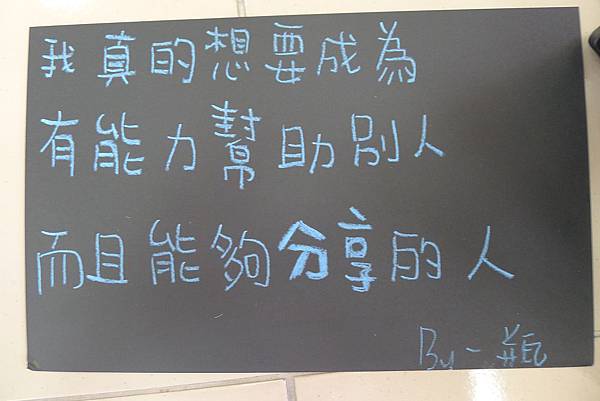 我真的想要成為
有能力幫助別人
而且能夠分享的人
By 一瓶